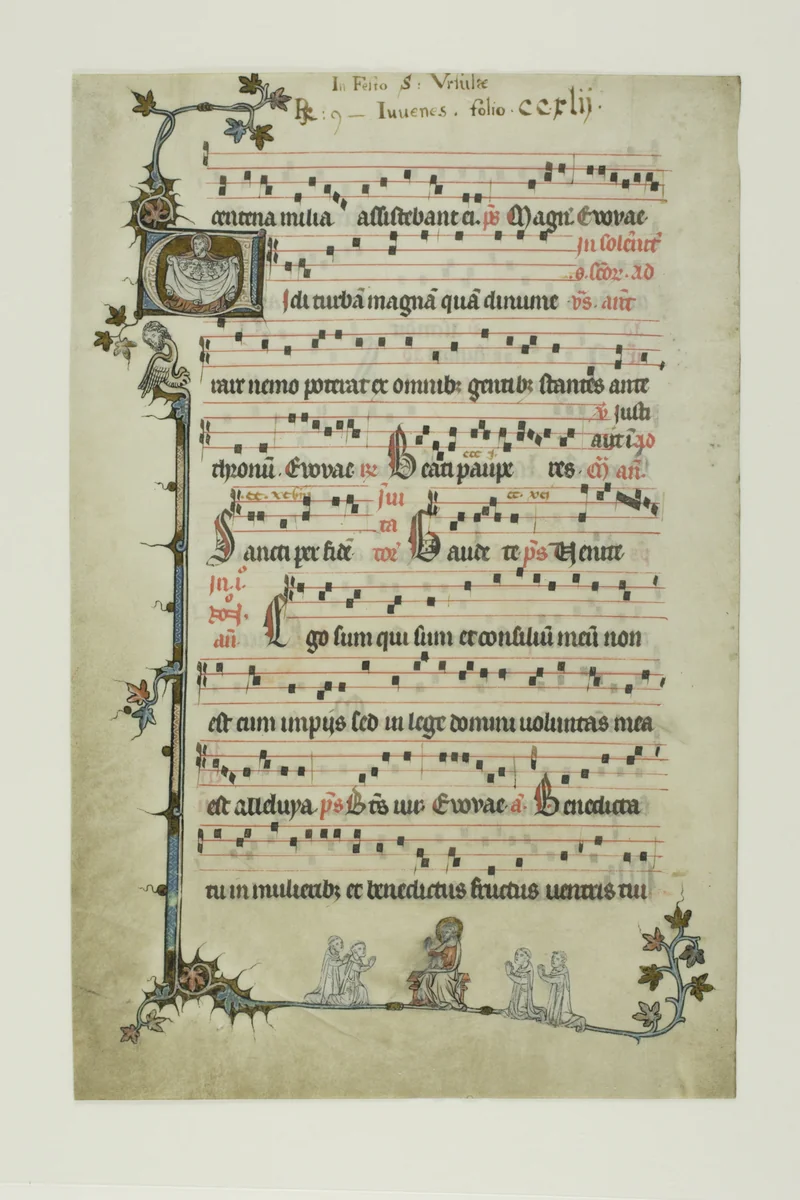 In Festo S: Vrsulæ
℟ : 9 — Iuuenes . folio . ccxlij .
centena milia assistebant ei. ps Magn. Evovae
In solēnit
s. scōr. ad
Vidi turbā magnā quā dinume vs. ant
rare nemo poterat ex omnibꝫ gentibꝫ stantes ante
justi
aut ī ad
thronū. Evovae Beati paupe res. an.
cc. xc
cc. xci
Sancti per fidē Gaude te ps Venite
In .i.
an
Ego sum qui sum et consiliū meū non
est cum impijs sed in lege domini uoluntas mea
est alleluya ps Bt̄s uir. Evovae a. Benedicta
tu in mulieribꝫ et benedictus fructus uentris tui